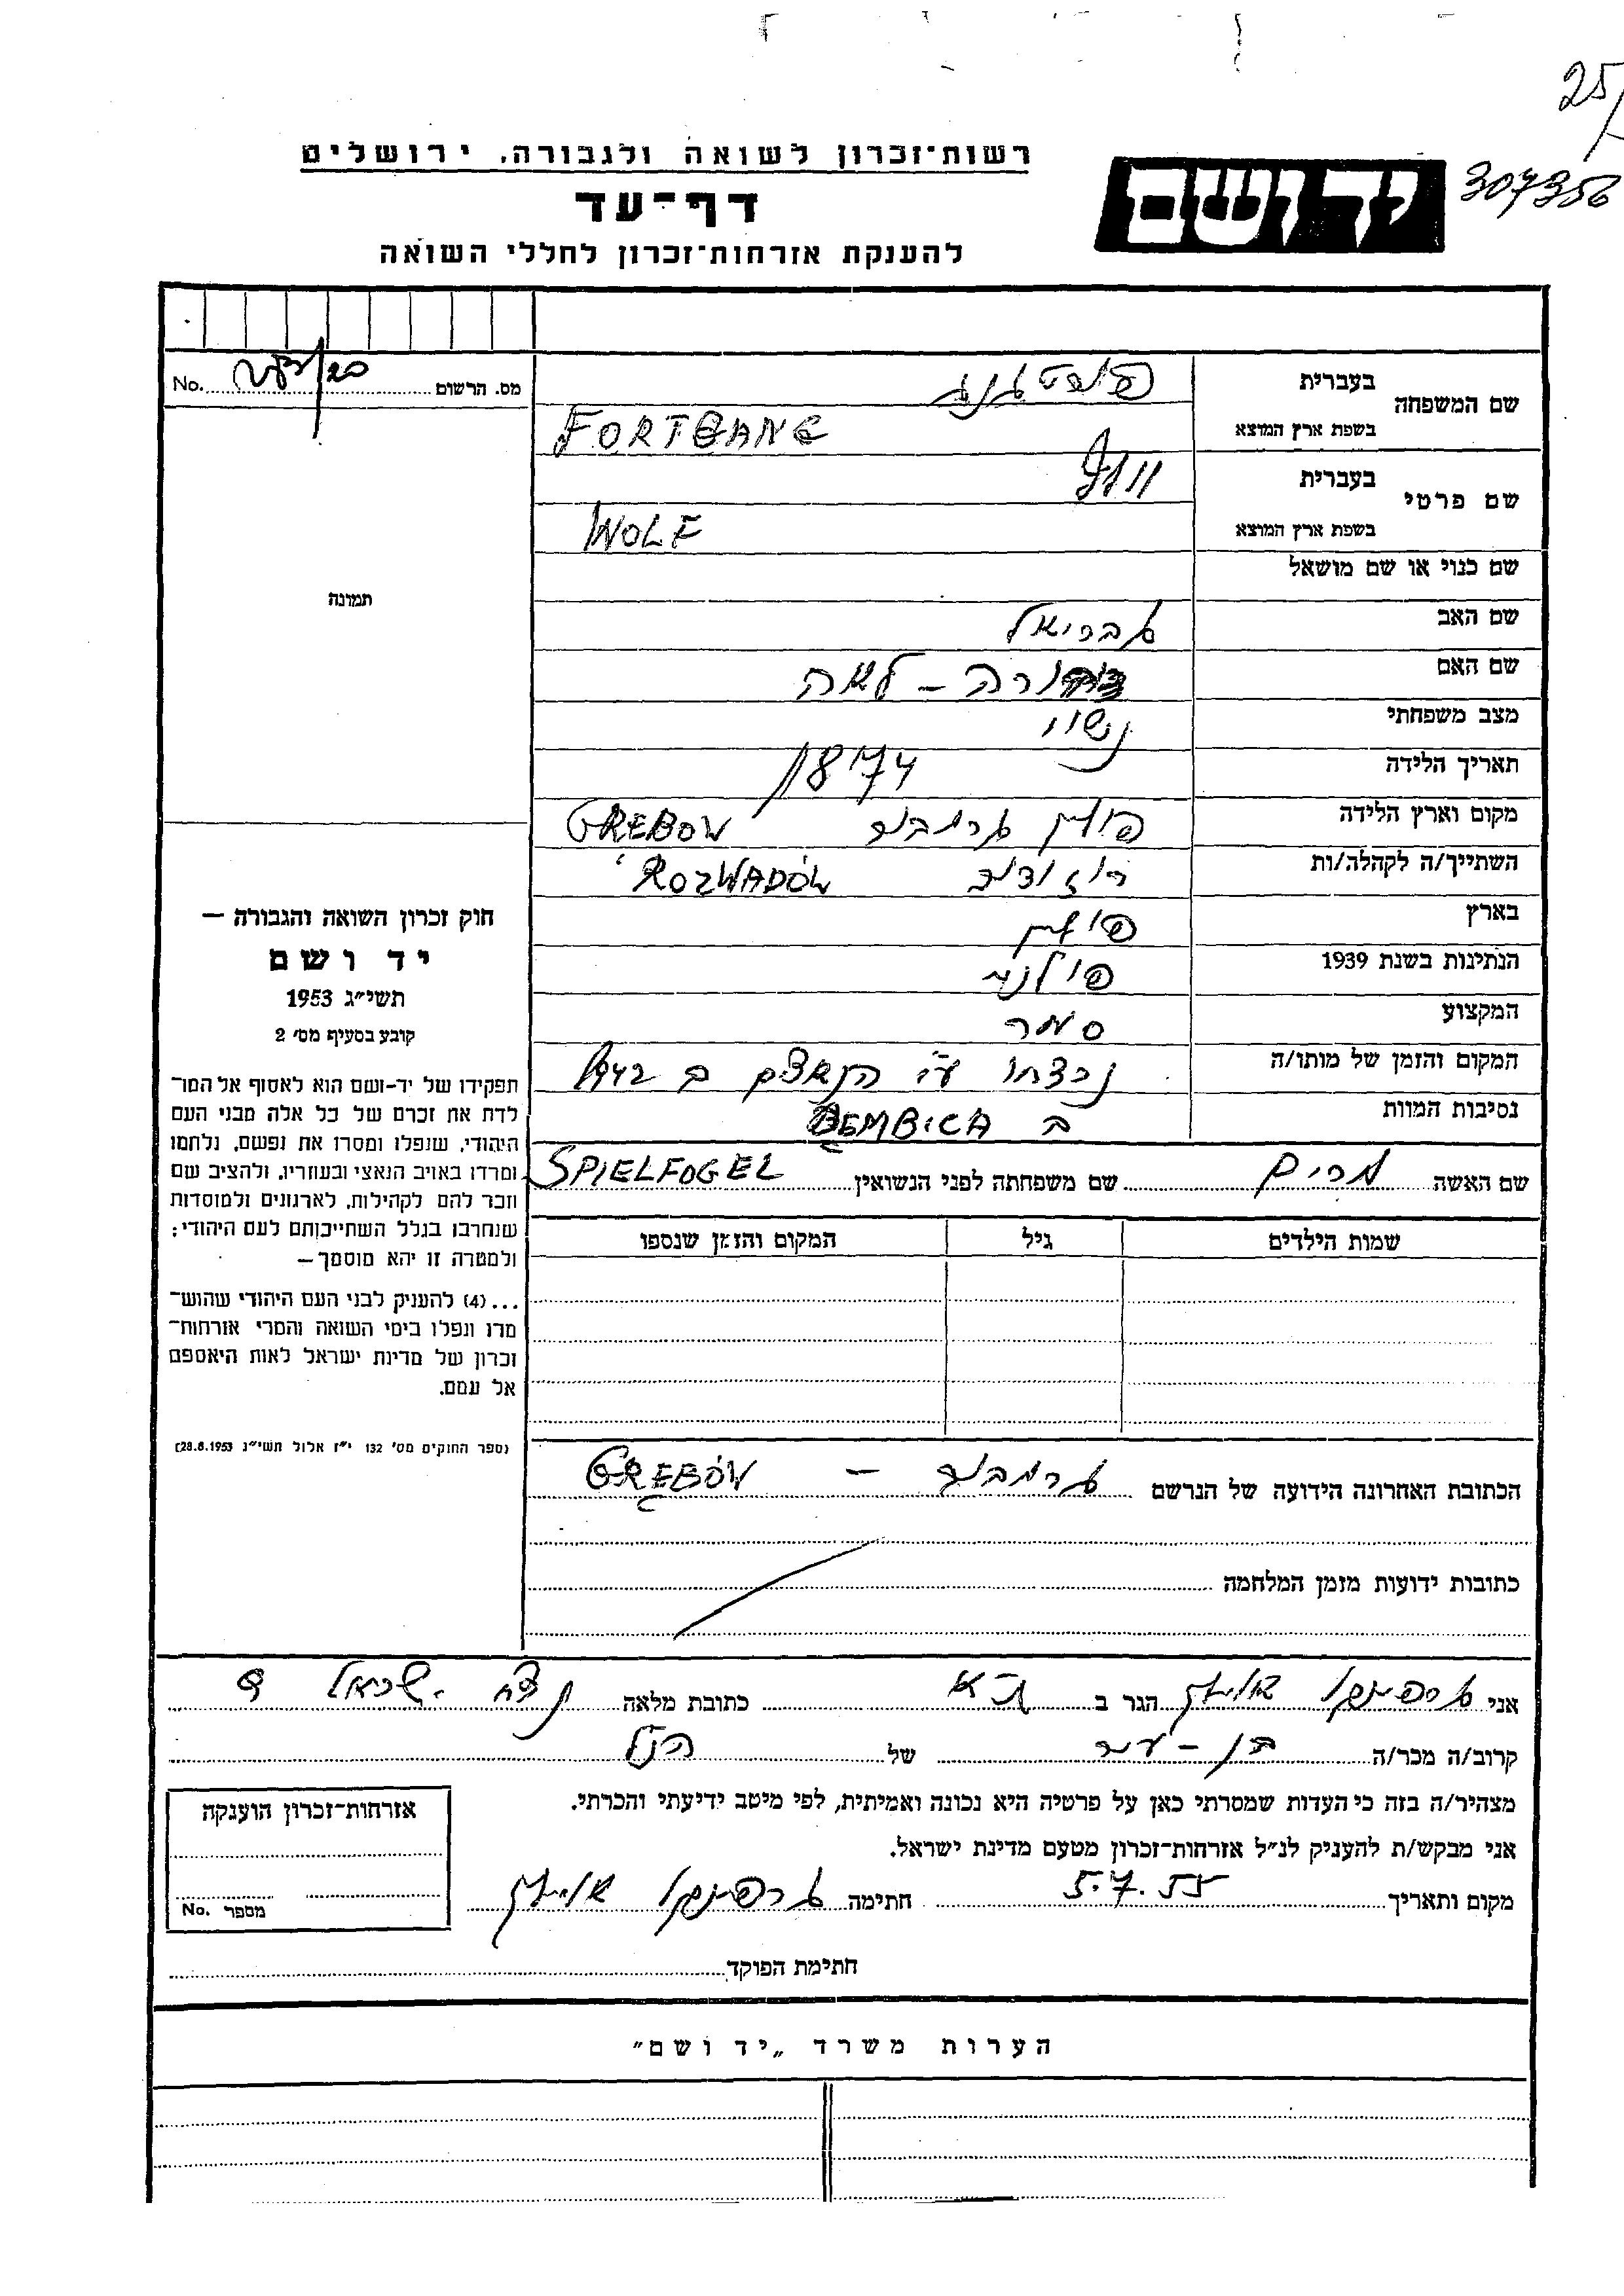 25/
307356
רשות־זכרון לשואה ולגבורה, ירושלים
יד ושם
דף־עד
להענקת אזרחות־זכרון לחללי השואה
מס. הרשום No.
שם המשפחה בעברית פורטגנג
בשפת ארץ המוצא FORTGANG
שם פרטי בעברית וולף
בשפת ארץ המוצא WOLF
שם כנוי או שם מושאל
תמונה
שם האב גבריאל
שם האם לאה
מצב משפחתי נשוי
תאריך הלידה 1874
מקום וארץ הלידה פולין גרמבוב GREBOW
השתייך/ה לקהלה/ות רוזודוב ROZWADÓW
בארץ פולין
הנתינות בשנת 1939 פולנית
המקצוע סוחר
המקום והזמן של מותו/ה נרצחו ע"י הנאצים ב 1942
נסיבות המוות ב DEMBICA
שם האשה מרים שם משפחתה לפני הנשואין SPIELFOGEL
שמות הילדים גיל המקום והזמן שנספו
חוק זכרון השואה והגבורה —
יד ושם
תשי"ג 1953
קובע בסעיף מס' 2
תפקידו של יד-ושם הוא לאסוף אל המו־
לדת את זכרם של כל אלה מבני העם
היהודי, שנפלו ומסרו את נפשם, נלחמו
ומרדו באויב הנאצי ובעוזריו, ולהציב שם
וזכר להם לקהילות, לארגונים ולמוסדות
שנחרבו בגלל השתייכותם לעם היהודי;
ולמטרה זו יהא מוסמך —
...(4) להעניק לבני העם היהודי שהוש־
מדו ונפלו בימי השואה והמרי אזרחות־
זכרון של מדינת ישראל לאות היאספם
אל עמם.
(ספר החוקים מס' 132 י"ז אלול תשי"ג 28.8.1953)
הכתובת האחרונה הידועה של הנרשם גרמבוב — GREBÓW
כתובות ידועות מזמן המלחמה
אני גרפינקל הגר ב ת"א כתובת מלאה נצח ישראל 9
קרוב/ה מכר/ה בן-עיר של הנ"ל
מצהיר/ה בזה כי העדות שמסרתי כאן על פרטיה היא נכונה ואמיתית, לפי מיטב ידיעתי והכרתי.
אני מבקש/ת להעניק לנ"ל אזרחות־זכרון מטעם מדינת ישראל.
מקום ותאריך 5.7.55 חתימה גרפינקל
אזרחות־זכרון הוענקה
מספר No.
חתימת הפוקד
הערות משרד „יד ושם"